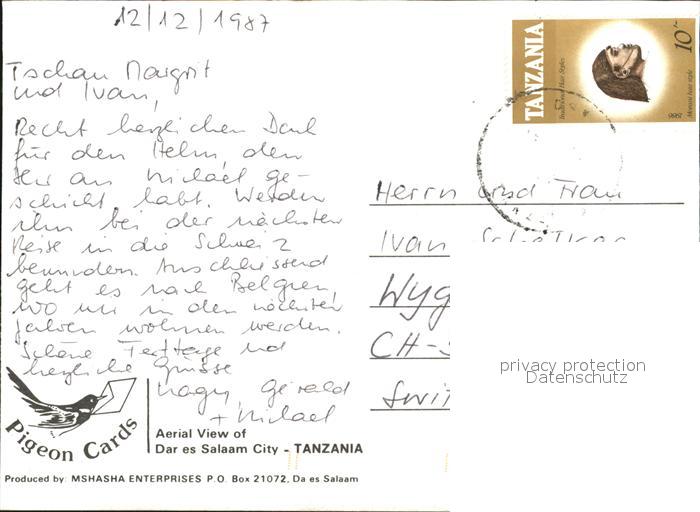 12/12/1987
Tschau Margrit
und Ivan,
Recht herzlichen Dank
für den Helm, den
Ihr an Michael ge-
schickt habt. Werden
ihn bei der nächsten
Reise in die Schweiz
bewundern. Anschliessend
geht es nach Belgien,
wo wir in den nächsten
Jahren wohnen werden.
Schöne Festtage und
herzliche Grüsse
Gérald
+ Michael
TANZANIA
10/-
Traditional Hair Styles
hair style
1986
Herrn und Frau
Ivan
Wyg
CH-
Swit
privacy protection
Datenschutz
Pigeon Cards
Aerial View of
Dar es Salaam City - TANZANIA
Produced by: MSHASHA ENTERPRISES P.O. Box 21072, Da es Salaam